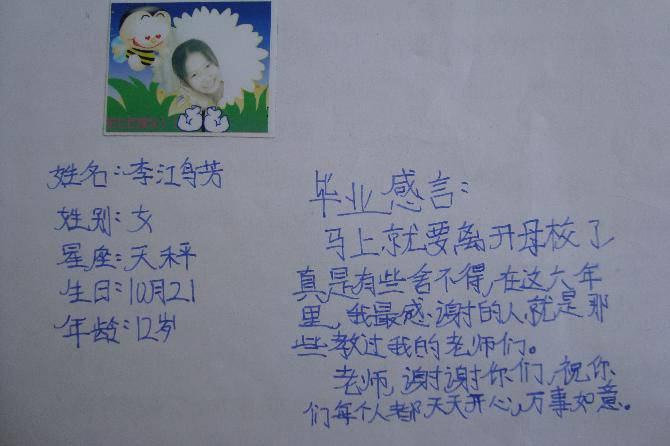 姓名：李江鸟芳
性别：女
星座：天秤
生日：10月21
年龄：12岁
毕业感言：
马上就要离开母校了
真是有些舍不得，在这六年
里，我最感谢的人就是那
些教过我的老师们。
老师，谢谢你们，祝你
们每个人都天天开心，万事如意。